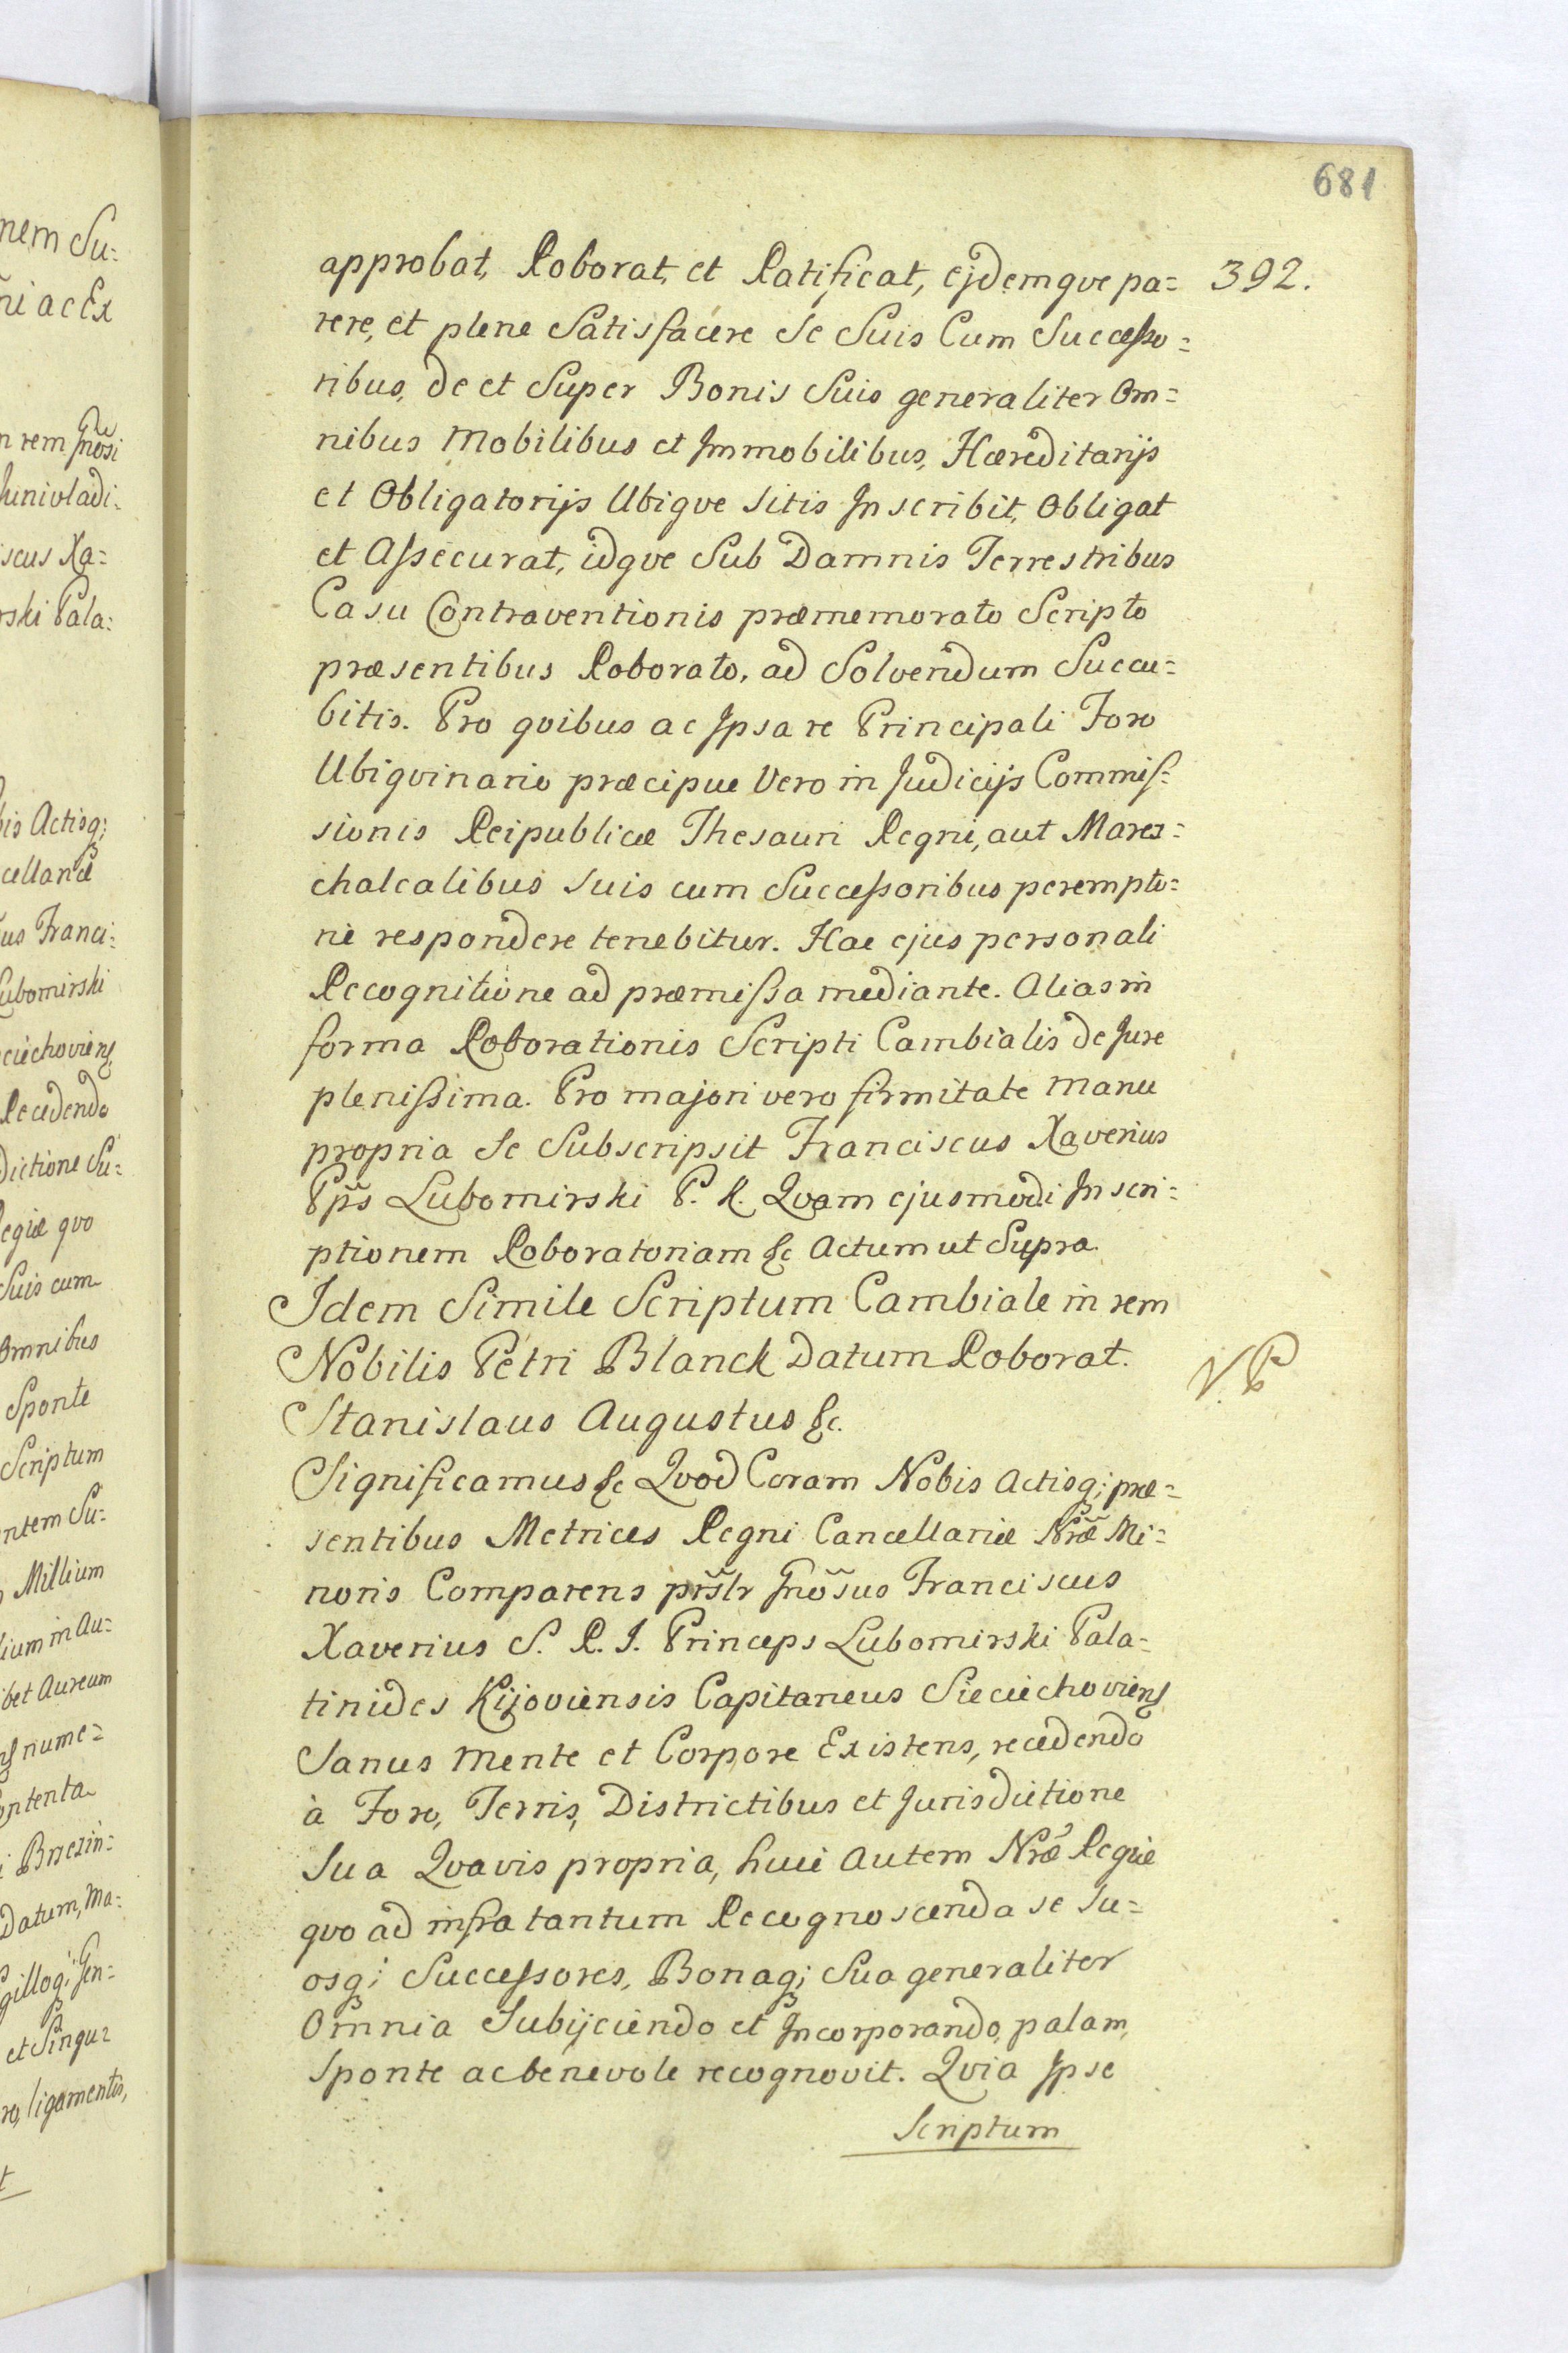 681
392.
approbat, Roborat, et Ratificat, ejdemqve pa=
rere, et plene Satisfacere Se Suis Cum Successo=
ribus, de et Super Bonis Suis generaliter Om=
nibus Mobilibus et Immobilibus, Hæreditarijs
et Obligatorijs Ubiqve sitis Inscribit, Obligat
et Assecurat, idqve Sub Damnis Terrestribus
Casu Contraventionis præmemorato Scripto
præsentibus Roborato, ad Solvendum Succu=
bitis. Pro qvibus ac Ipsa re Principali Foro
Ubiqvinario præcipue Vero in Judicijs Commis=
sionis Reipublicæ Thesauri Regni, aut Mares=
chalcalibus suis cum Successoribus perempto=
rie respondere tenebitur. Hac ejus personali
Recognitione ad præmissa mediante. Alias in
forma Roborationis Scripti Cambialis de Jure
plenissima. Pro majori vero firmitate manu
propria Se Subscripsit Franciscus Xaverius
Pp̃s Lubomirski P. K. Qvam ejusmodi Inscri=
ptionem Roboratoriam &c Actum ut Supra.
Idem Simile Scriptum Cambiale in rem
Nobilis Petri Blanck Datum Roborat.
V. P
Stanislaus Augustus &c.
Significamus &c Qvod Coram Nobis Actisq; præ=
sentibus Metrices Regni Cancellariæ Nr̃æ Mi=
noris Comparens pr̃slr Gnõsus Franciscus
Xaverius S. R. I. Princeps Lubomirski Pala=
tinides Kijoviensis Capitaneus Sieciechoviens
Sanus mente et Corpore Existens, recedendo
à Foro, Terris, Districtibus et Jurisdictione
Sua Qvavis propria, huic autem Nr̃æ Regiæ
qvo ad infra tantum Recognoscenda se su=
osq; Successores, Bonaq; Sua generaliter
Omnia Subijciendo et Incorporando, palam,
Sponte ac benevole recognovit. Qvia Ipse
Scriptum